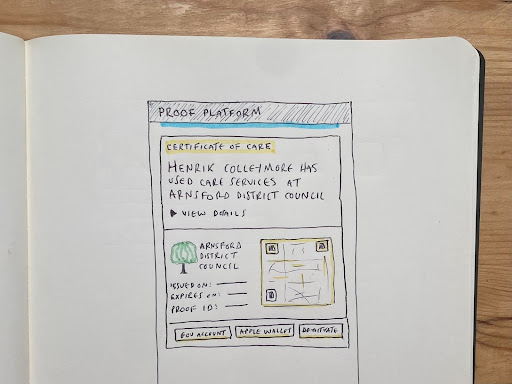 PROOF PLATFORM
CERTIFICATE OF CARE
HENRIK COLLEYMORE HAS
USED CARE SERVICES AT
ARNSFORD DISTRICT COUNCIL
▶ VIEW DETAILS
ARNSFORD
DISTRICT
COUNCIL
ISSUED ON:
EXPIRES ON:
PROOF ID:
GOV ACCOUNT
APPLE WALLET
DE-ACTIVATE